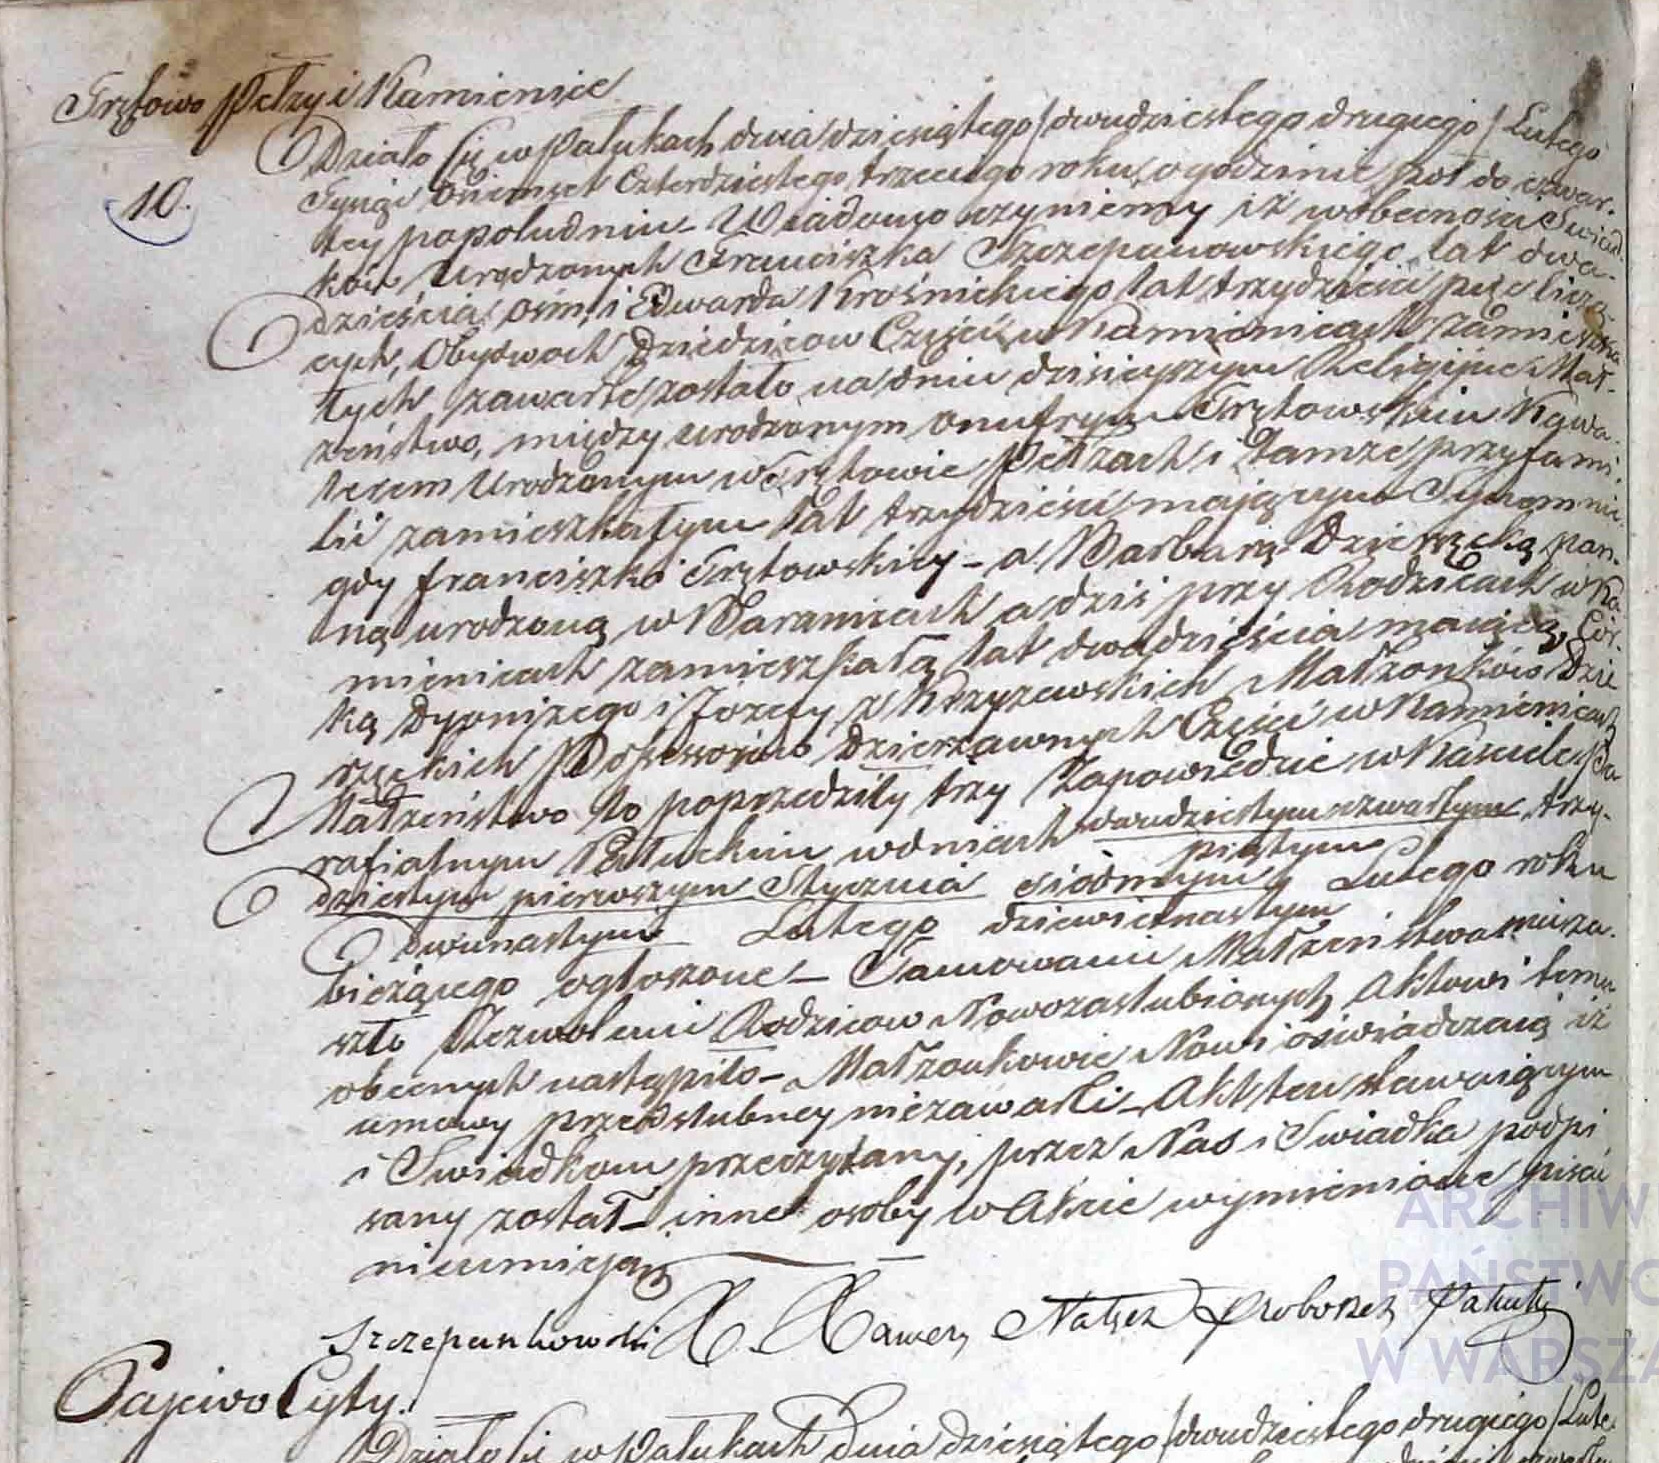 Trętowo Pełzy i Kamienice
10.
Działo się w Pałukach dnia dziesiątego / dwudziestego drugiego / Lutego
Tysiąc Ośmset Czterdziestego trzeciego roku, o godzinie pół do czwar-
tey popołudniu – Wiadomo czyniemy iż w obecności Świad-
ków Urodzonych Franciszka Szczepanowskiego lat dwa-
dzieścia ośm, i Edwarda Krośnickiego lat trzydzieści pięć liczą-
cych, Obydwoch Dziedziców Części w Kamienicach zamieszka-
łych zawarte zostało na dniu dzisieyszym Religijne Mał-
żeństwo, między urodzonym Onufrym Trętowskim Kawa-
lerem Urodzonym w Trętowie Pełzach i Tamże przy fami-
lii zamieszkałym lat trzydzieści mającym Synem nie-
gdy Franciszki Trętowskiey – a Barbarą Dzierzęcką pan-
ną urodzoną w Baranicach a dziś przy Rodzicach w Ka-
mienicach zamieszkałą lat dwadzieścia mającą, Cór-
ką Dyonizego i Jozefy z Krzyzewskich Małżonków Dzie
rzęckich Possessorów Dzierzawnych Części w Kamienicach
Małżeństwo to poprzedziły trzy Zapowiedzie w Kościele Pa-
rafialnym Pałuckim w dniach dwudziestym czwartym, trzy-
dziestym pierwszym Stycznia siódmym piątym Lutego roku
Dwunastym Lutego dziewietnastym
bieżącego ogłoszone – Tamowanie Małżeństwa niezas-
szło Zezwolenie Rodziców Nowozaslubionych Aktowi temu
obecnych nastąpiło – Małżonkowie Nowi oświadczaią iż
umowy przedślubney niezawarli – Akt ten stawaiącym
i Świadkom przeczytany, przez Nas i Świadka podpi
sany został – inne osoby w Akcie wymienione pisać
nieumieją
Szczepankowski X. Xawery Nałęcz Proboszcz Pałucki
Pajewo Cyty.
Działo się w Pałukach Dnia dziesiątego / dwudziestego drugiego / Lute-
ARCHIW
PAŃSTWO
W WARSZA